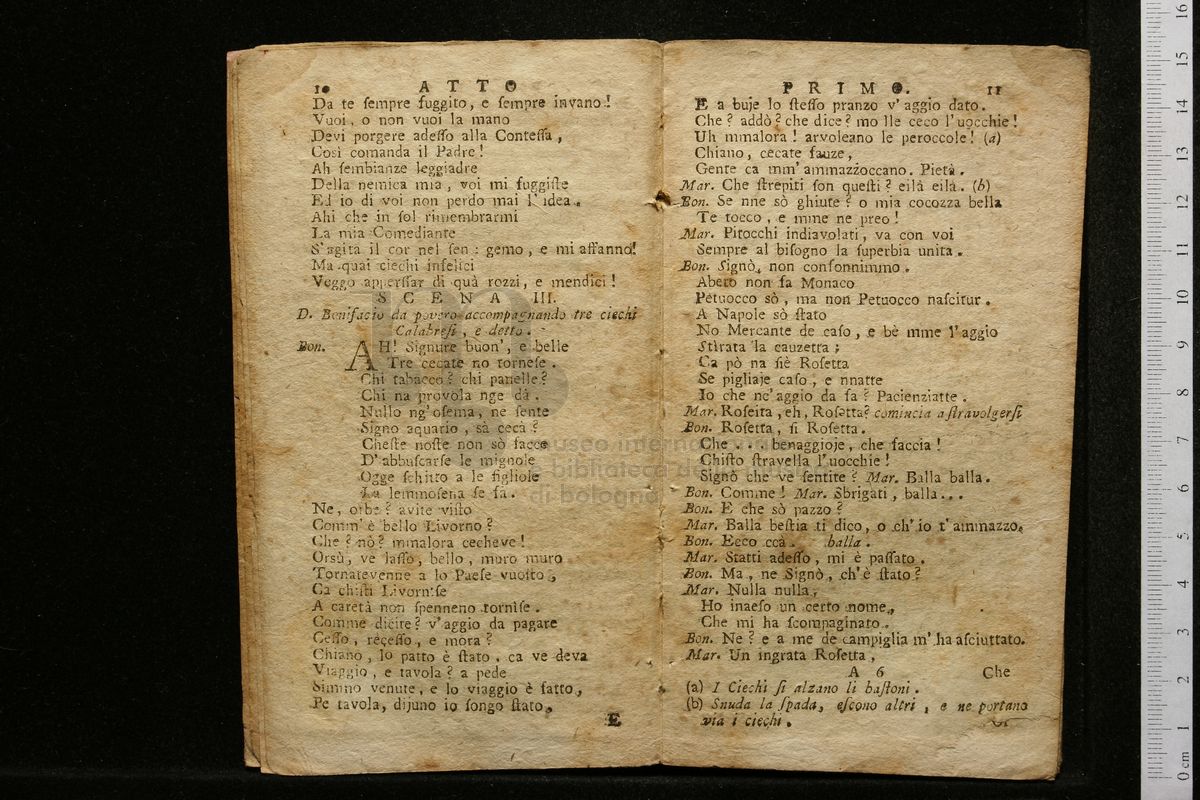 10 ATTO
Da te ſempre fuggito, e ſempre invano!
Vuoi, o non vuoi la mano
Devi porgere adeſſo alla Conteſſa,
Così comanda il Padre!
Ah ſembianze leggiadre
Della nemica mia, voi mi fuggiſte
Ed io di voi non perdo mai l'idea.
Ahi che in ſol rimembrarmi
La mia Comediante
S'agita il cor nel ſen: gemo, e mi affanno!
Ma quai ciechi infelici
Veggo appreſſar di quà rozzi, e mendici!
SCENA III.
D. Bonifacio da povero accompagnando tre ciechi
Calabreſi, e detto.
Bon. AH! Signure buon', e belle
Tre cecate no torneſe.
Chi tabacco? chi panelle?
Chi na provola nge dà.
Nullo ng'oſema, ne ſente
Signo aquario, sà cecà?
Cheſte noſte non sò facce
D'abbuſcarſe le mignole
Ogge ſchitto a le figliole
La lemmoſena ſe fa.
Ne, orbe? avite viſto
Comm'è bello Livorno?
Che? nò? mmalora cecheve!
Orsù, ve laſſo, bello, muro muro
Tornatevenne a lo Paeſe vuoſto,
Ca chiſti Livorniſe
A caretà non ſpenneno torniſe.
Comme dicite? v'aggio da pagare
Ceſſo, receſſo, e mora?
Chiano, lo patto è ſtato, ca ve deva
Viaggio, e tavola? a pede
Simmo venute, e lo viaggio è fatto,
Pe tavola, dijuno io ſongo ſtato,
E
PRIMO. 11
E a buje lo ſteſſo pranzo v'aggio dato.
Che? addò? che dice? mo lle ceco l'uocchie!
Uh mmalora! arvoleano le peroccole! (a)
Chiano, cecate fauze,
Gente ca mm'ammazzoccano. Pietà.
Mar. Che ſtrepiti ſon queſti? eilà eilà. (b)
Bon. Se nne sò ghiute? o mia cocozza bella
Te tocco, e mme ne preo!
Mar. Pitocchi indiavolati, va con voi
Sempre al biſogno la ſuperbia unita.
Bon. Signò, non conſonnimmo.
Abeto non fa Monaco
Petuocco sò, ma non Petuocco naſcitur.
A Napole sò ſtato
No Mercante de caſo, e bè mme l'aggio
Stirata la cauzetta;
Ca pò na ſiè Roſetta
Se pigliaje caſo, e nnatte
Io che nc'aggio da fa? Pacienziatte.
Mar. Roſetta, eh, Roſetta? comincia a ſtravolgerſi
Bon. Roſetta, ſi Roſetta.
Che ... benaggioje, che faccia!
Chiſto ſtravella l'uocchie!
Signò che ve ſentite? Mar. Balla balla.
Bon. Comme! Mar. Sbrigati, balla...
Bon. E che sò pazzo?
Mar. Balla beſtia ti dico, o ch'io t'ammazzo.
Bon. Ecco ccà. balla.
Mar. Statti adeſſo, mi è paſſato.
Bon. Ma, ne Signò, ch'è ſtato?
Mar. Nulla nulla,
Ho inaeſo un certo nome,
Che mi ha ſcompaginato.
Bon. Ne? e a me de campiglia m'ha aſciuttato.
Mar. Un ingrata Roſetta,
A 6 Che
(a) I Ciechi ſi alzano li baſtoni.
(b) Snuda la ſpada, eſcono altri, e ne portano
via i ciechi.